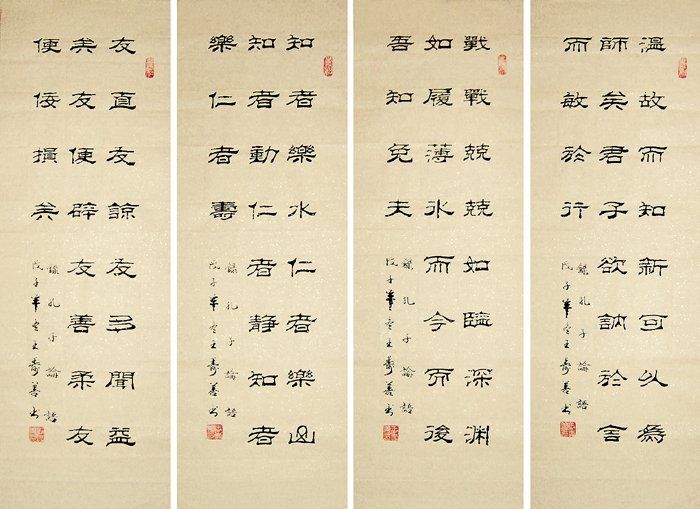 温故而知新可以為
師矣君子欲訥於言
而敏於行
錄孔子論語
戊子年 壽善书
戰戰兢兢如臨深淵
如履薄氷而今而後
吾知免夫
錄孔子論語
戊子 壽善书
知者樂水仁者樂山
知者動仁者靜知者
樂仁者壽
錄孔子論語
戊子年 壽善书
友直友諒友多聞益
矣友便辟友善柔友
便佞損矣
錄孔子論語
戊子年 壽善书